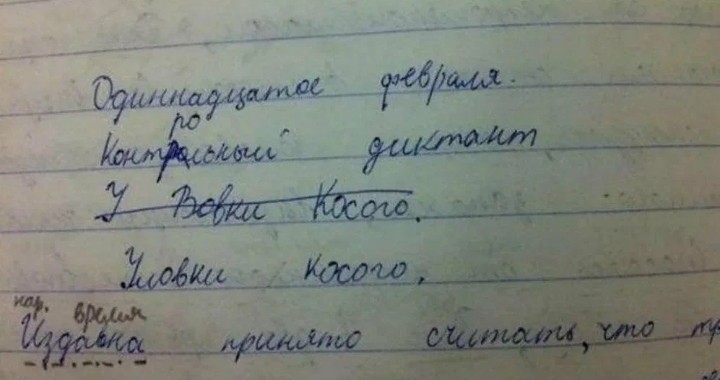 Одиннадцатое февраля.
ро
Контрольный диктант
У Вовки Косого.
Уловки косого.
нар. время
Издавна принято считать, что